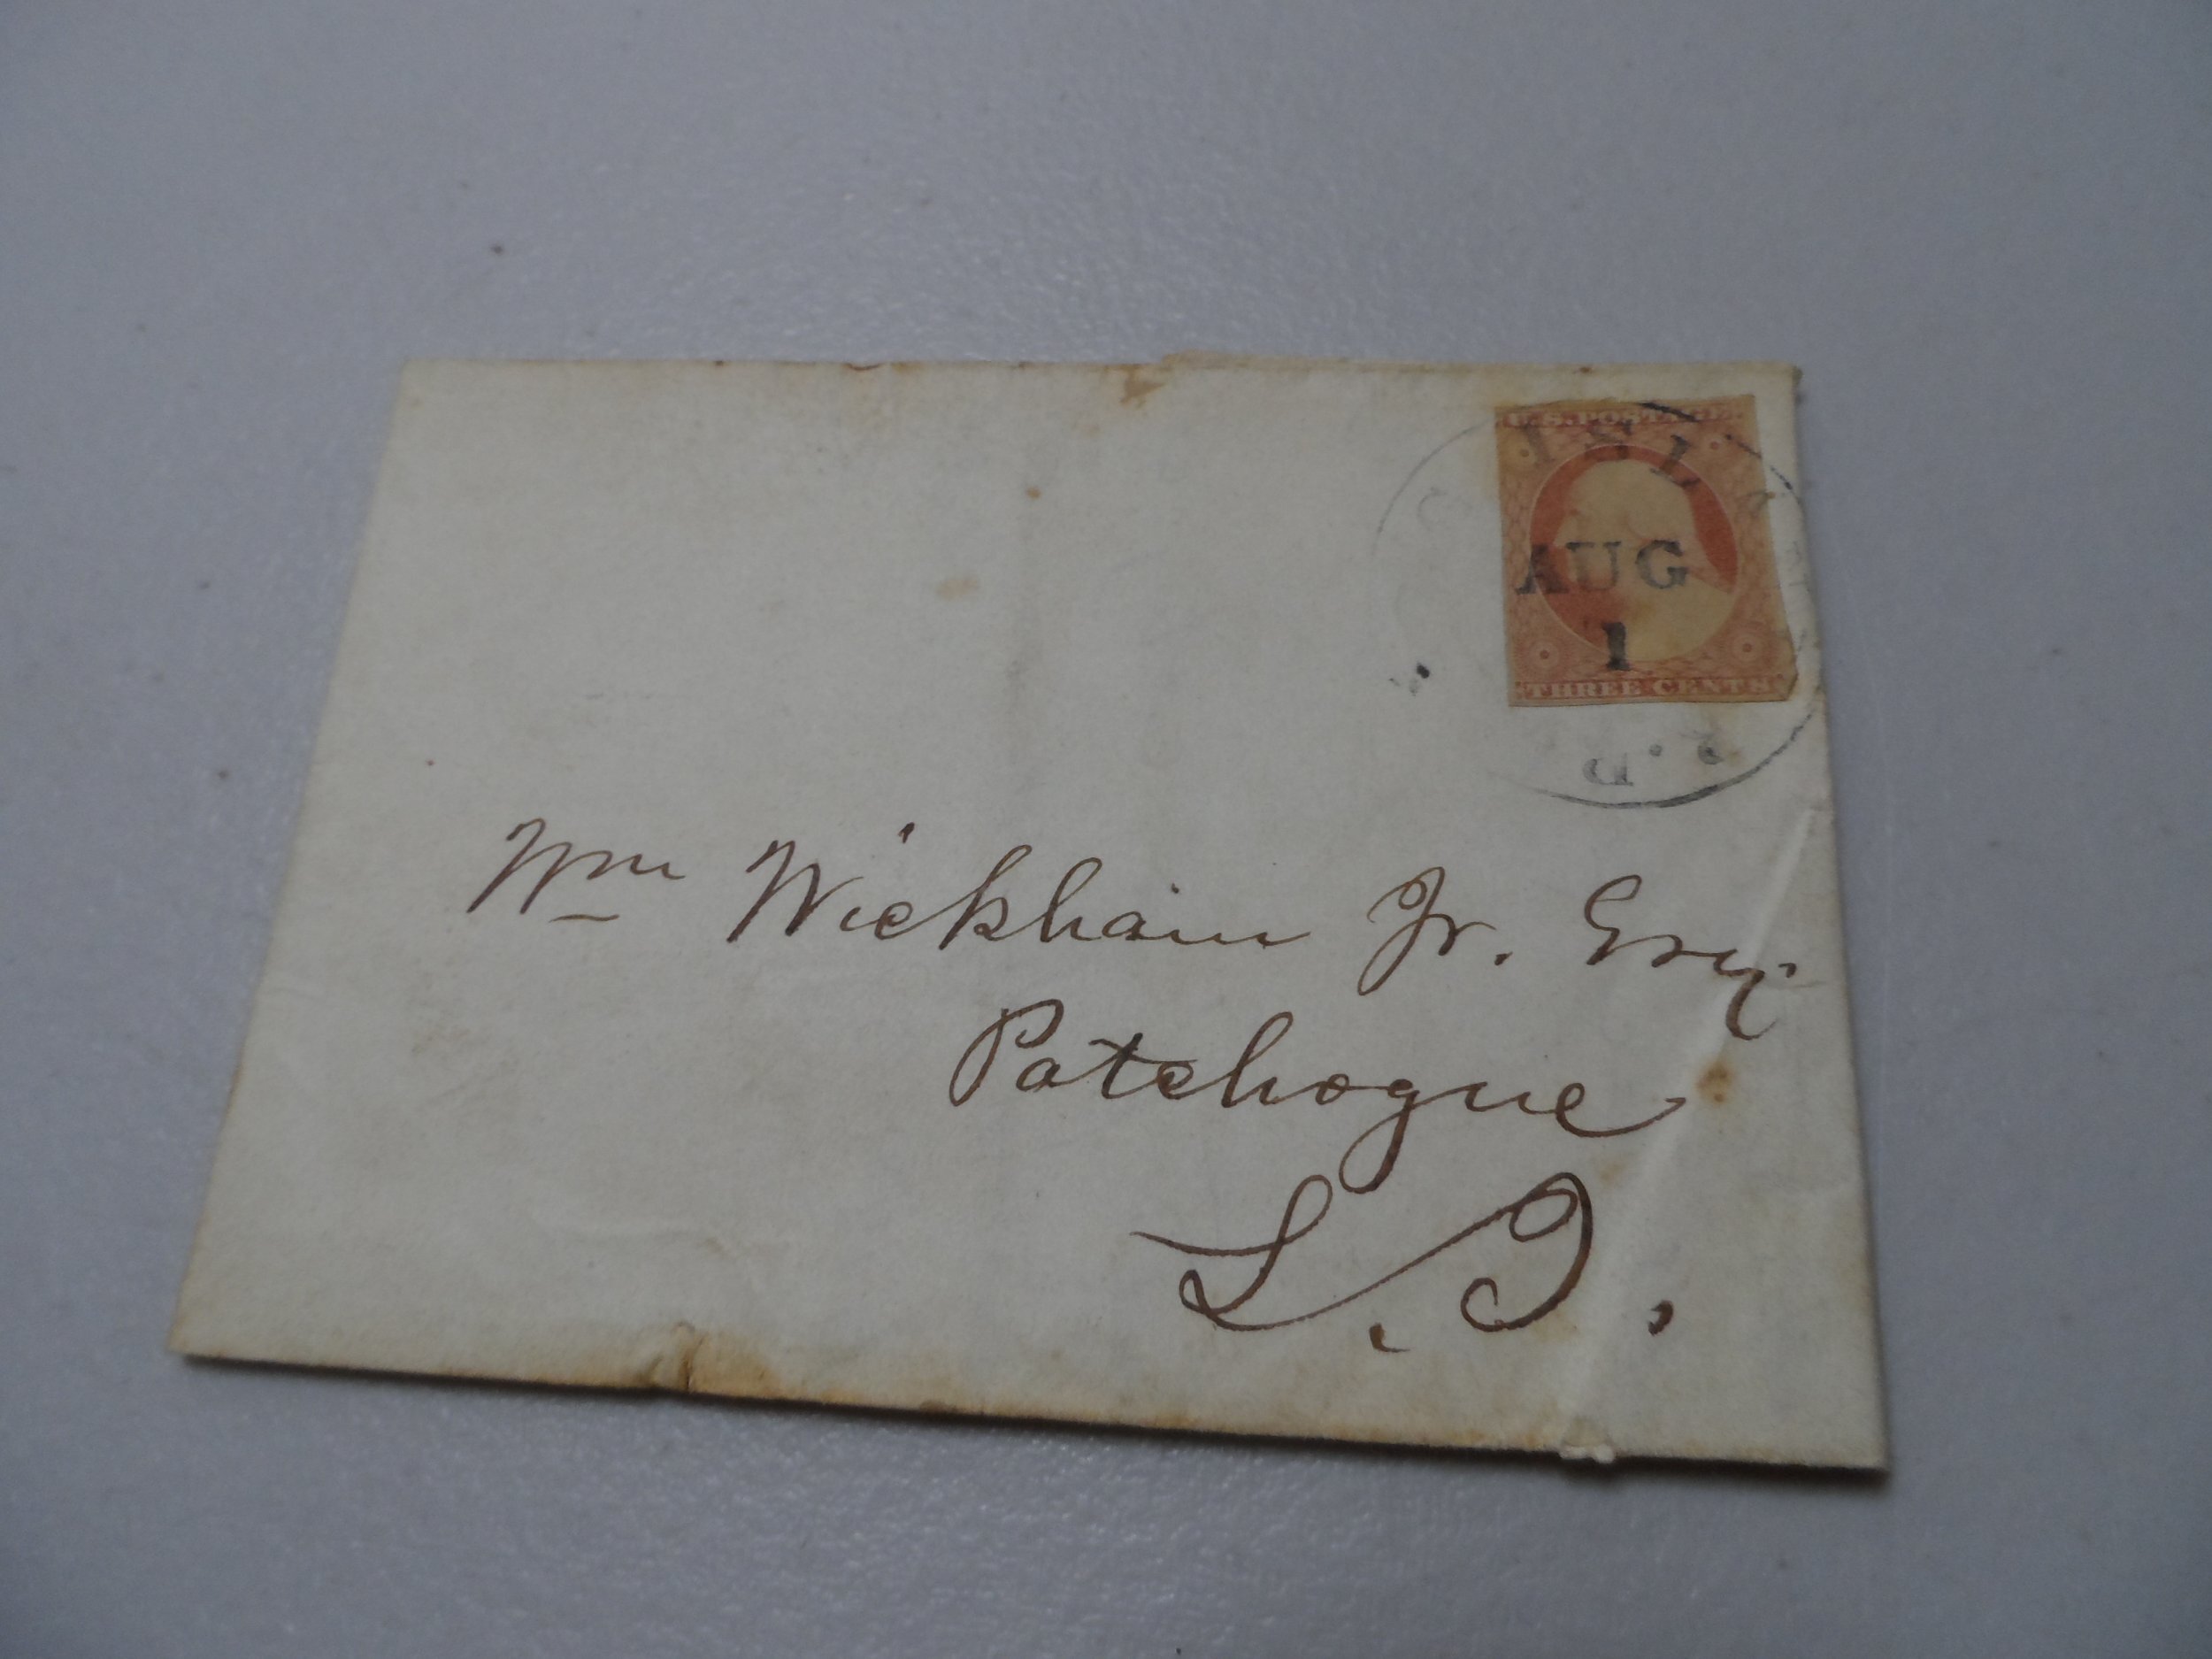 U.S. POSTAGE
ISL
AUG
1
THREE CENTS
Wm Wickham Jr. Esq.
Patchogue
L. I.